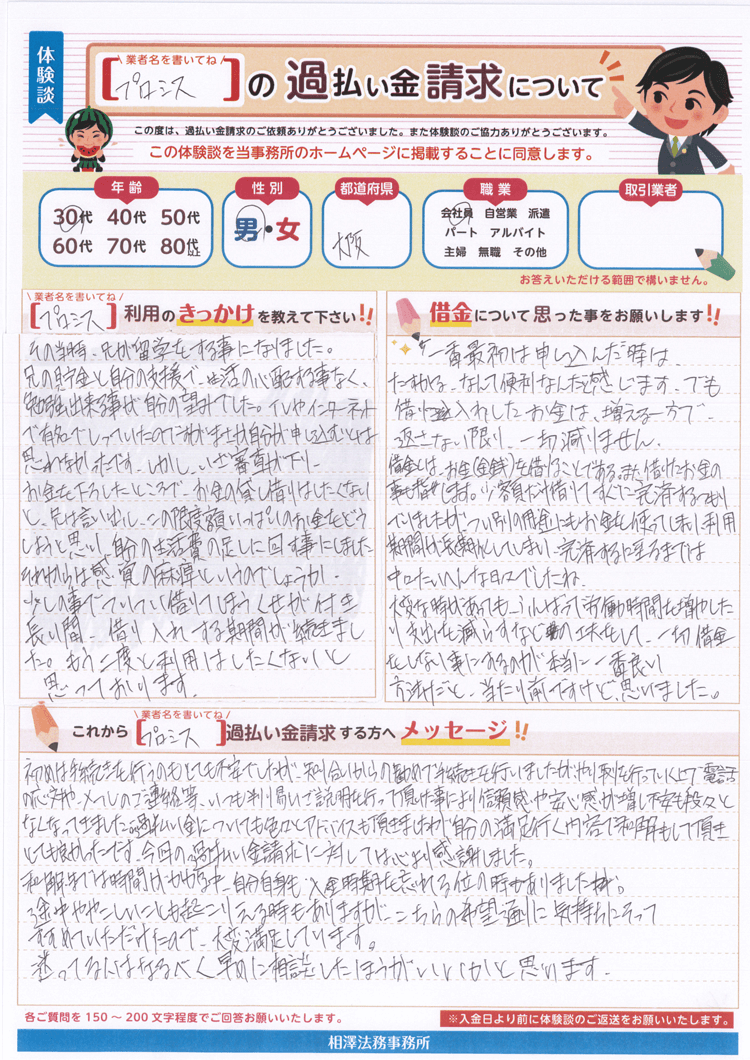 体験談
\ 業者名を書いてね /
[プロミス]の 過払い金 請求について
この度は、過払い金請求のご依頼ありがとうございました。また体験談のご協力ありがとうございます。
この体験談を当事務所のホームページに掲載することに同意します。
年齢
30代 40代 50代
60代 70代 80代以上
性別
男・女
都道府県
大阪
職業
会社員 自営業 派遣
パート アルバイト
主婦 無職 その他
取引業者
お答えいただける範囲で構いません。
\ 業者名を書いてね /
[プロミス]利用のきっかけを教えて下さい!!
その当時、兄が留学をする事になりました。
兄の貯金と自分の支援で、生活の心配する事なく、
勉強出来る事が自分の望みでした。テレビやインターネット
で有名でしっていたのですがまさか自分が申し込むとは
思わなかったです。しかし、いざ審査が下り、
お金を下ろしたところで、お金の貸し借りはしたくない
と、兄は言い出し、この限度額いっぱいのお金をどう
しようと思い、自分の生活費の足しに回す事にしました
それからは感覚の麻痺というのでしょうか、
少しの事でついつい借りてしまうくせが付き
長い間、借り入れする期間が続きまし
た。もう二度と利用はしたくないと
思っております。
借金について思った事をお願いします!!
一番最初は申し込んだ時は、
ためらう、なんて便利なんだと感じます。でも
借り入れしたお金は、増える一方で、
返さない限り、一切減りません。
借金とは、お金(金銭)を借りることである。また、借りたお金の
事も指します。少額だけ借りてすぐに完済するつもり
でいましたがつい別の用途にもお金を使ってしまい利用
期間が長期化してしまい、完済するに至るまでは
中々たいへんな日々でしたね。
大変な時があっても、ふんばって労働時間を増やした
り、支出を減らすなどの工夫をして、一切借金
をしない事にするのが本当に一番良い
方法だと、当たり前ですけど、思いました。
\ 業者名を書いてね /
これから[プロミス]過払い金請求する方へメッセージ!!
初めは手続きを行うのもとても不安でしたが、知り合いからの勧めで手続きを行いましたがやり取りを行っていく上で電話
の応対や、メールのご連絡等、いつも判り易いご説明を行って頂けた事により信頼感や安心感が増し不安も段々と
なくなってきました。過払い金についても色々とアドバイスも頂きましたが自分の満足行く内容で和解もして頂き
とても良かったです。今回の過払い金請求に対しては心より感謝しました。
和解までは時間はかかる中、自分自身も入金時期を忘れる位の時がありました。
途中ややこしいことも起こりえる時もありますが、こちらの希望通りに気持ちにそって
すすめていただけたので、大変満足しています。
迷ってる人はなるべく早めに相談したほうがいいかと思います。
各ご質問を 150 〜 200 文字程度でご回答お願いいたします。
※入金日より前に体験談のご返送をお願いいたします。
相澤法務事務所